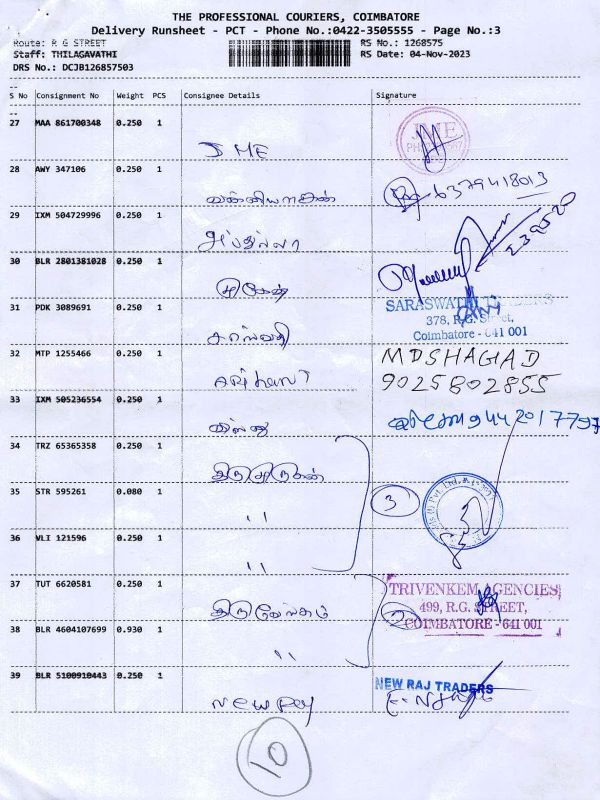 THE PROFESSIONAL COURIERS, COIMBATORE
Delivery Runsheet - PCT - Phone No.:0422-3505555 - Page No.:3
Route: R G STREET RS No.: 1268575
Staff: THILAGAVATHI RS Date: 04-Nov-2023
DRS No.: DCJB126857503
S No Consignment No Weight PCS Consignee Details Signature
27 MAA 861700348 0.250 1
JME
JME
28 AWY 347106 0.250 1
6379418013
29 IXM 504729996 0.250 1
அப்துல்லா
30 BLR 2801381028 0.250 1
முகேஷ்
31 PDK 3089691 0.250 1
SARASWATHI TRADERS
378, R.G. Street,
Coimbatore - 641 001
சரஸ்வதி
32 MTP 1255466 0.250 1
MDSHAGIAD
9025802855
33 IXM 505236554 0.250 1
9442017797
34 TRZ 65365358 0.250 1
திருமுருகன்
35 STR 595261 0.080 1
" 3
36 VLI 121596 0.250 1
"
37 TUT 6620581 0.250 1
TRIVENKEM AGENCIES
499, R.G. STREET,
COIMBATORE - 641 001
திருவேங்கடம்
38 BLR 4604107699 0.930 1
" 2
39 BLR 5100910443 0.250 1
NEW RAJ TRADERS
New Raj
10